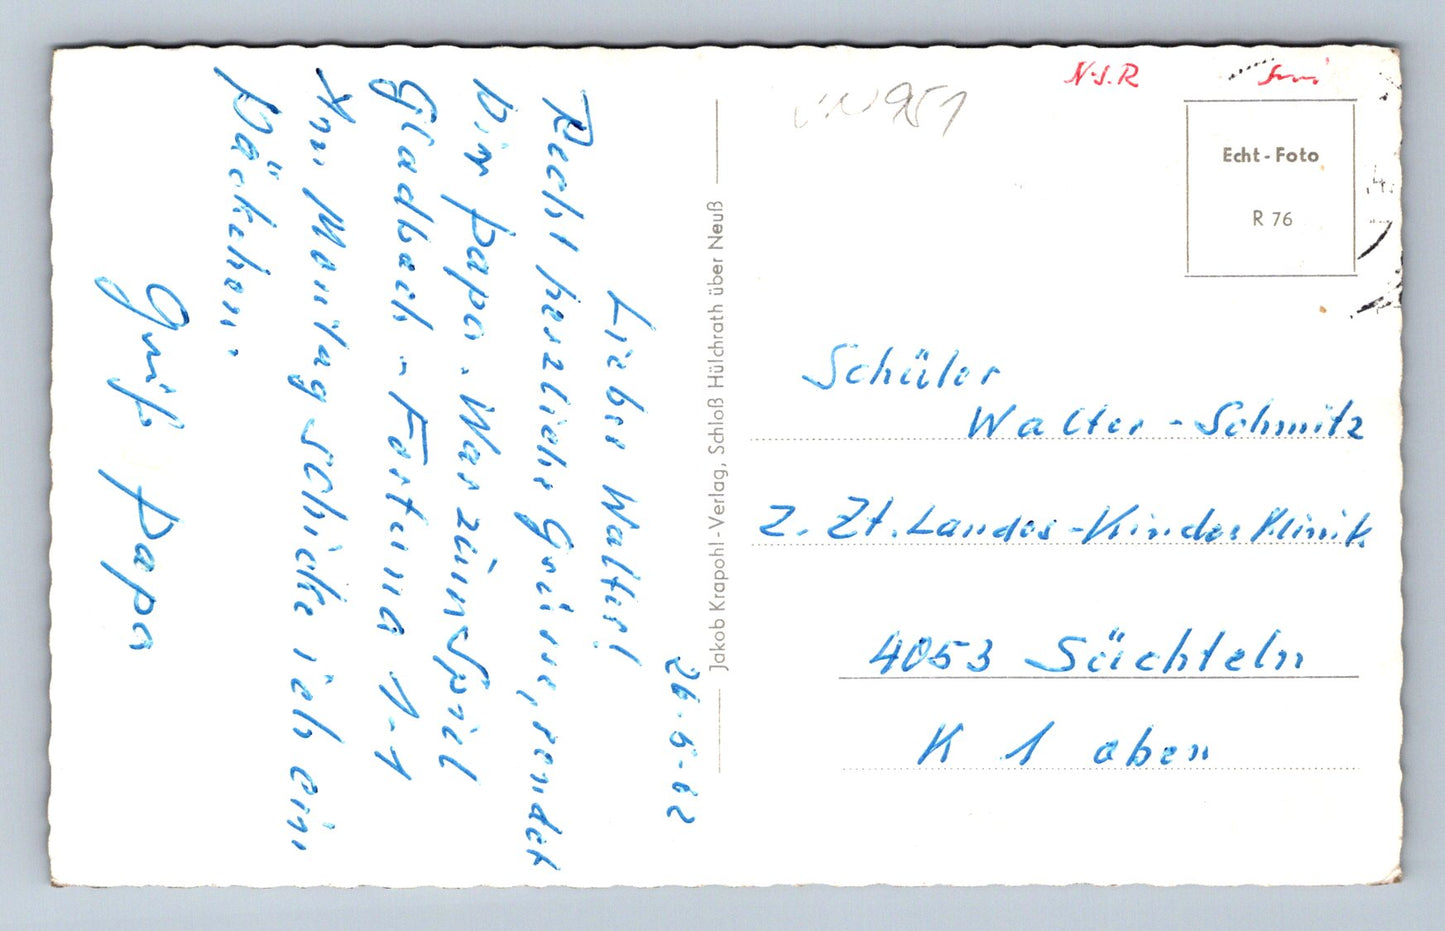 26-5-62
Lieber Walter!
Recht herzliche Grüsse, sendet
Dir papa. War zum Spiel
Gladbach - Fortuna 1-1
Am Montag schicke ich ein
Päckchen.
Gruß papa
Jakob Krapohl-Verlag, Schloß Hülchrath über Neuß
951
N.S.R
Echt-Foto
R 76
Schüler
Walter-Schmitz
z. Zt. Landes-Kinderklinik
4053 Süchteln
K 1 oben